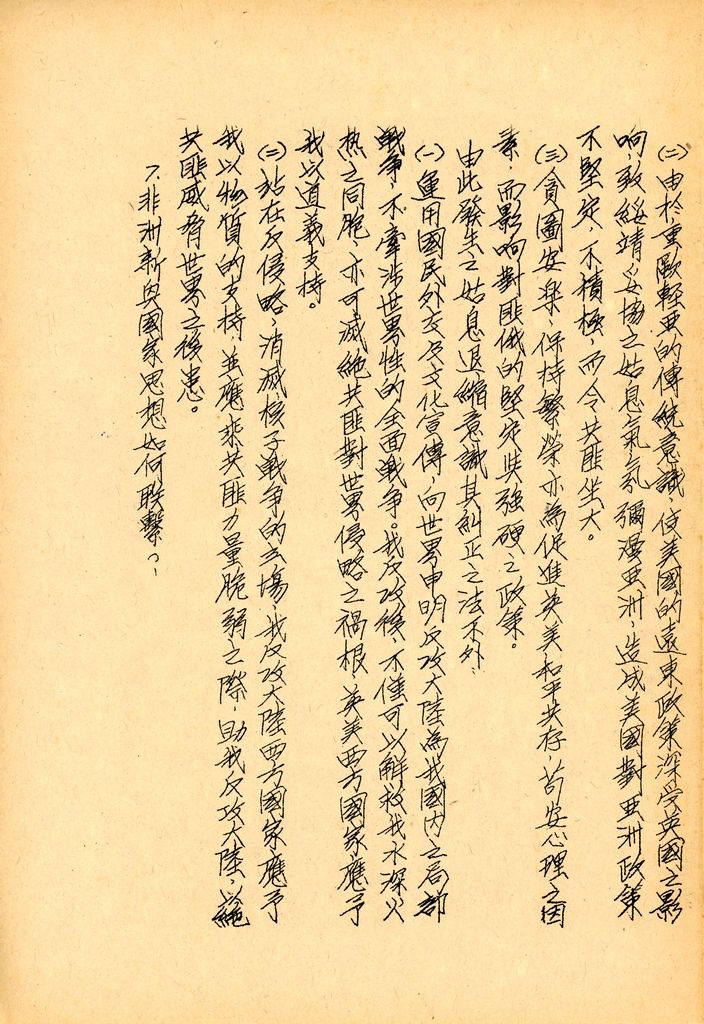 ㈡由於重歐輕亜的傳統意識，使美國的遠東政策深受英國之影
响，致綏靖妥協之姑息氣氛彌漫亜洲，造成美國對亜洲政策
不堅定，不積極，而令共匪坐大。
㈢貪圖安樂，保持繁榮亦為促進英美和平共存，苟安心理之因
素，而影响對匪俄的堅定與強硬之政策。
由此發生之姑息退縮意識其糾正之法不外，
㈠運用國民外交及文化宣傳，向世界申明反攻大陸為我國內之局部
戰爭，不牽涉世界性的全面戰爭。我反攻後，不僅可以解救我水深火
熱之同胞，亦可滅絕共匪對世界侵略之禍根，英美西方國家應予
我以道義支持。
㈡站在反侵略，消滅核子戰爭的立場，我反攻大陸西方國家應予
我以物質的支持，並應乘共匪力量脆弱之際，助我反攻大陸，以絕
共匪威脅世界之後患。
7.非洲新興國家思想如何聯繫？